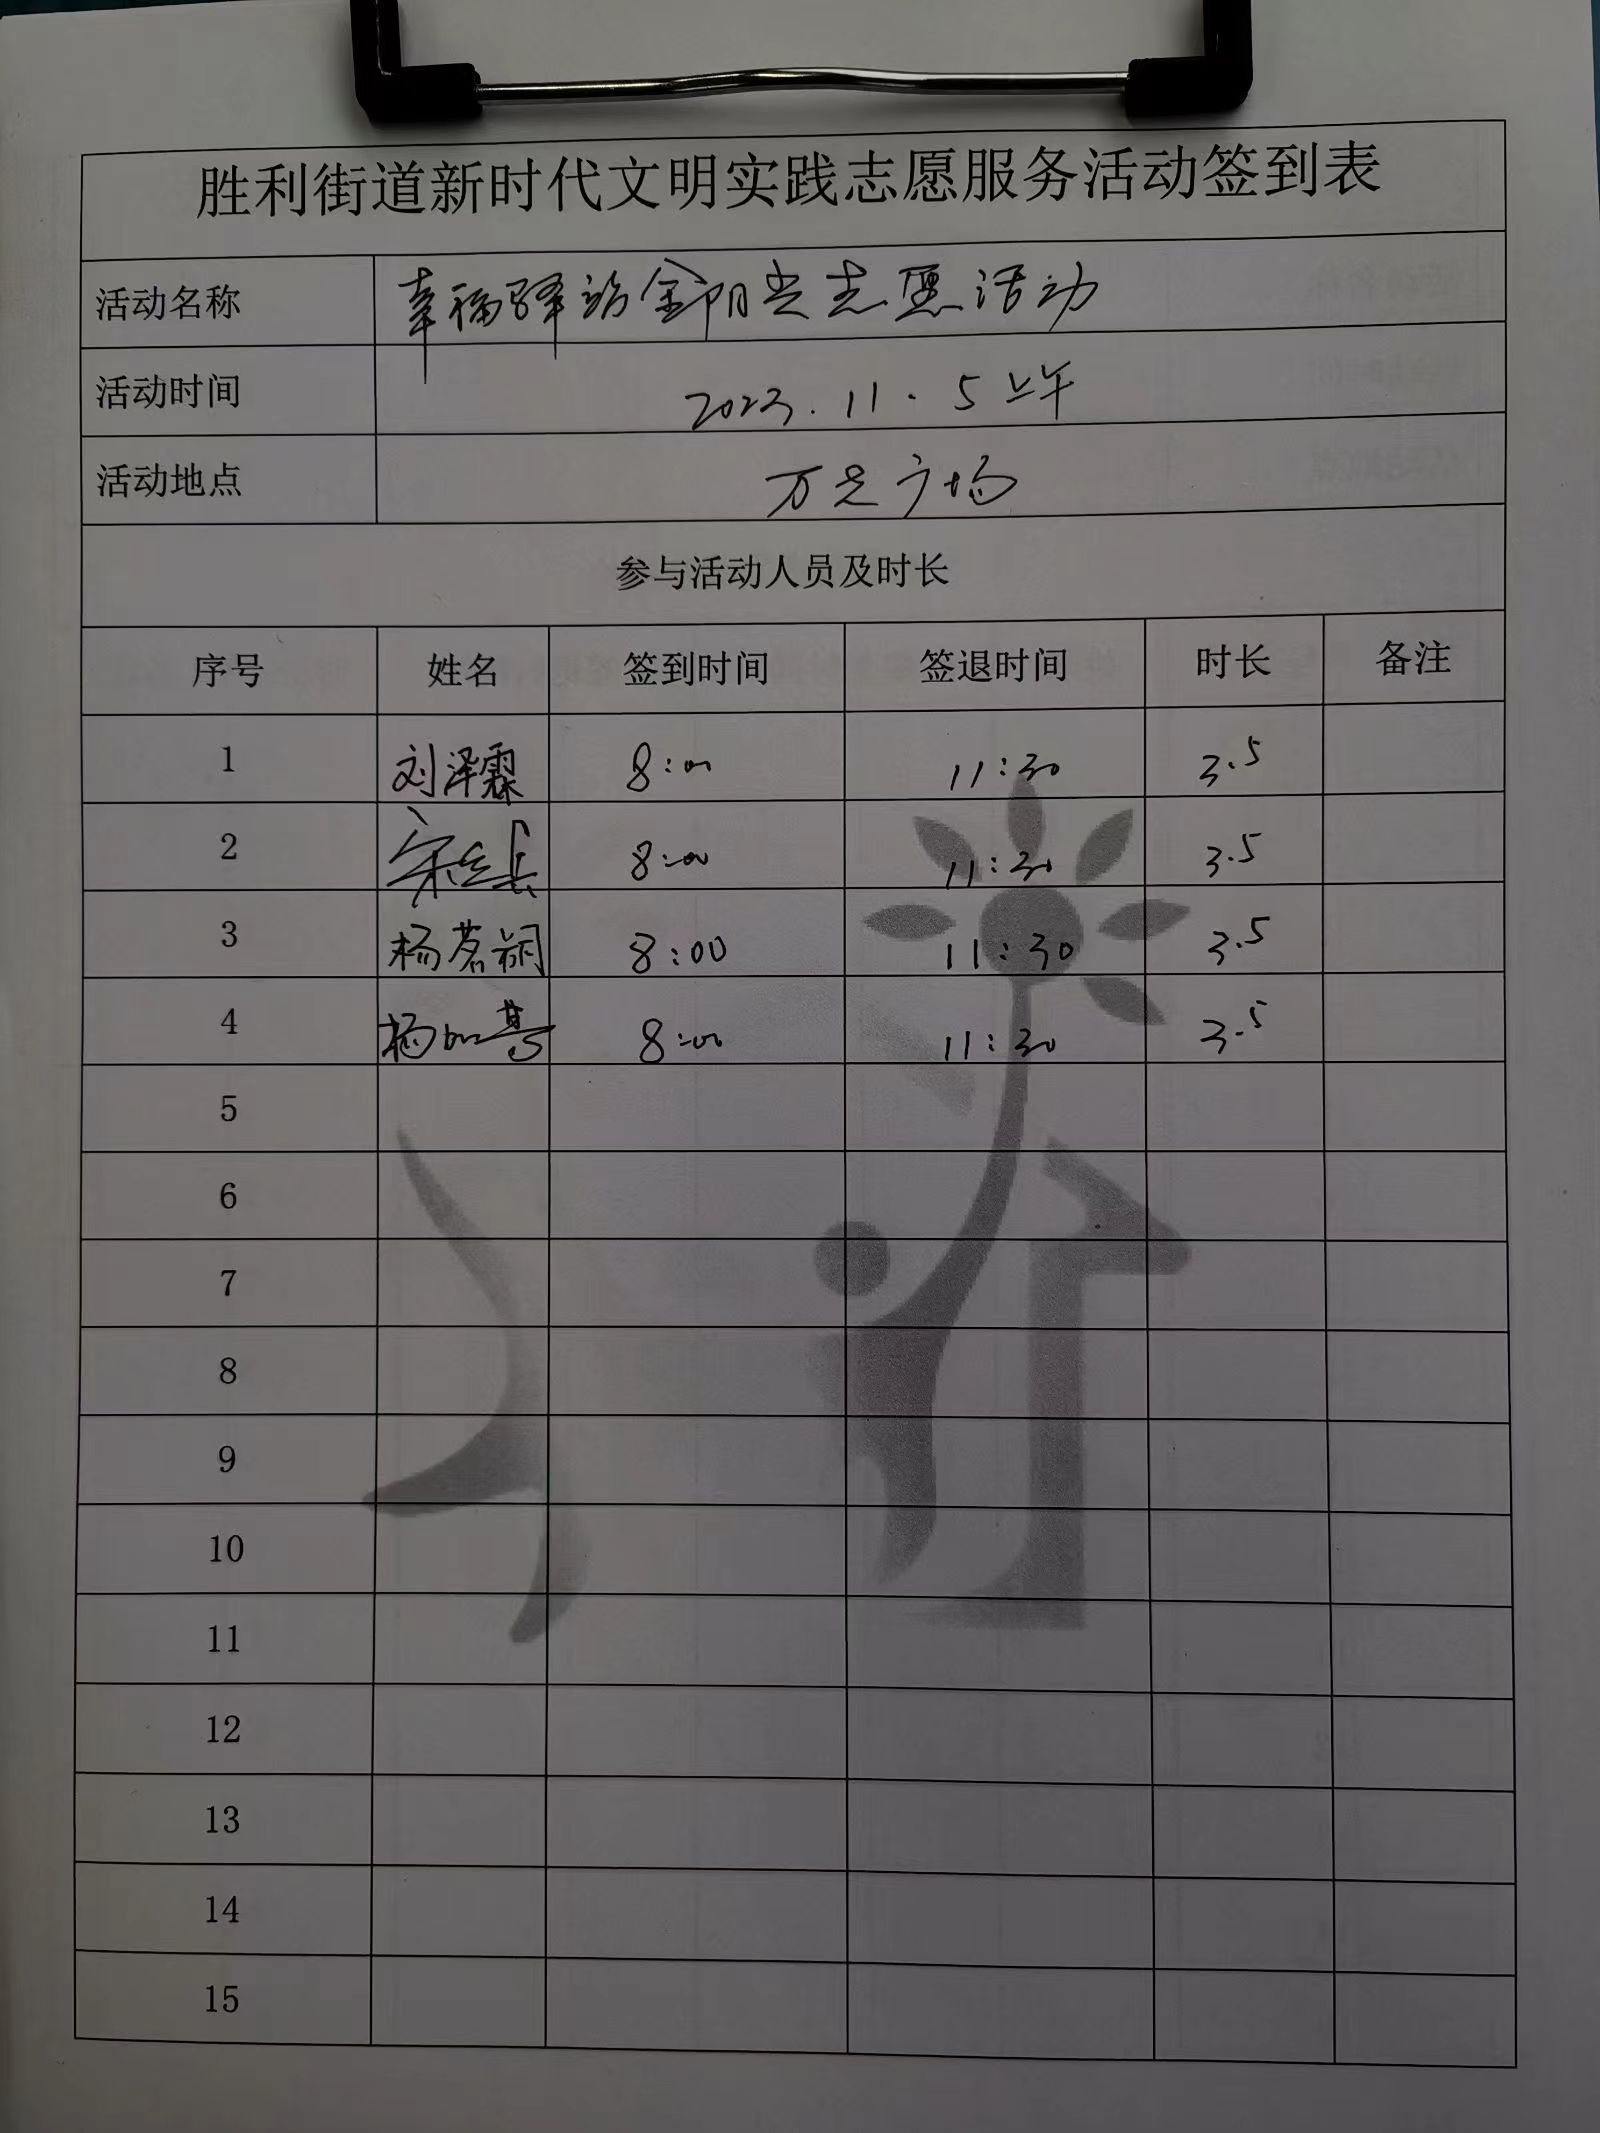 胜利街道新时代文明实践志愿服务活动签到表
活动名称 幸福驿站金阳光志愿活动
活动时间 2023.11.5上午
活动地点 万达广场
参与活动人员及时长
序号 姓名 签到时间 签退时间 时长 备注
1 刘泽霖 8:00 11:30 3.5
2 8:00 11:30 3.5
3 杨茗娴 8:00 11:30 3.5
4 杨 8:00 11:30 3.5
5
6
7
8
9
10
11
12
13
14
15